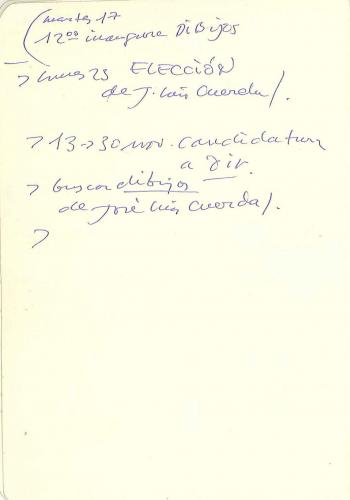 (martes 17
12⁰⁰ inaugura DIBUJOS
> lunes 23 ELECCIÓN
de J. Luis Cuerda/.
> 13 → 30 nov. Candidatura
a Dir.
> buscar dibujos
de José Luis Cuerda/.
>